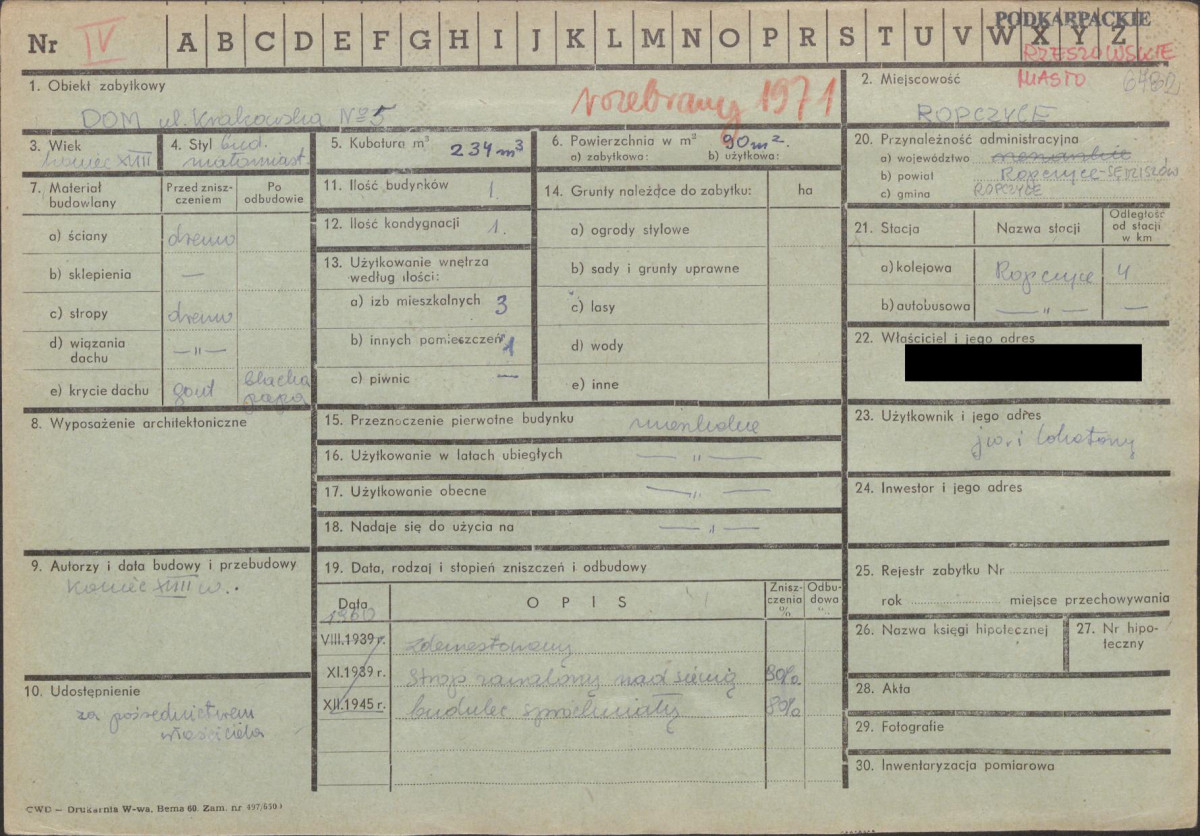 PODKARPACKIE
Nr IV A B C D E F G H I J K L M N O P R S T U V W X Y Z
RZESZOWSKIE
MIASTO 6782
1. Obiekt zabytkowy
DOM ul. Krakowska Nº 5
rozebrany 1971
2. Miejscowość
ROPCZYCE
3. Wiek
koniec XVIII
4. Styl bud.
małomiast.
5. Kubatura m³
234 m³
6. Powierzchnia w m² 90 m².
a) zabytkowa: b) użytkowa:
7. Materiał budowlany
Przed zniszczeniem
Po odbudowie
a) ściany drewno
b) sklepienia —
c) stropy drewno
d) wiązania dachu —"—
e) krycie dachu gont blacha papa
8. Wyposażenie architektoniczne
9. Autorzy i data budowy i przebudowy
koniec XVIII w.
10. Udostępnienie
za pośrednictwem
właściciela
11. Ilość budynków 1.
12. Ilość kondygnacji 1.
13. Użytkowanie wnętrza
według ilości:
a) izb mieszkalnych 3
b) innych pomieszczeń 1
c) piwnic —
14. Grunty należące do zabytku: ha
a) ogrody stylowe
b) sady i grunty uprawne
c) lasy
d) wody
e) inne
15. Przeznoczenie pierwotne budynku mieszkalne
16. Użytkowanie w latach ubiegłych —"—
17. Użytkowanie obecne —"—
18. Nadaje się do użycia na —"—
19. Data, rodzaj i stopień zniszczeń i odbudowy
Data OPIS Zniszczenia % Odbudowa %
1960
VIII.1939 r. zdewastowany
XI.1939 r. strop zawalony nad sienią 80%
XII.1945 r. budulec spróchniały 80%
20. Przynależność administracyjna
a) województwo rzeszowskie
b) powiat Ropczyce-SĘDZISZÓW
c) gmina ROPCZYCE
21. Stacja Nazwa stacji Odległość od stacji w km
a) kolejowa Ropczyce 4
b) autobusowa —"— —
22. Właściciel i jego adres
23. Użytkownik i jego adres
jw. i lokatorzy
24. Inwestor i jego adres
25. Rejestr zabytku Nr
rok miejsce przechowywania
26. Nazwa księgi hipotecznej
27. Nr hipoteczny
28. Akta
29. Fotografie
30. Inwentaryzacja pomiarowa
CWD — Drukarnia W-wa, Bema 60. Zam. nr